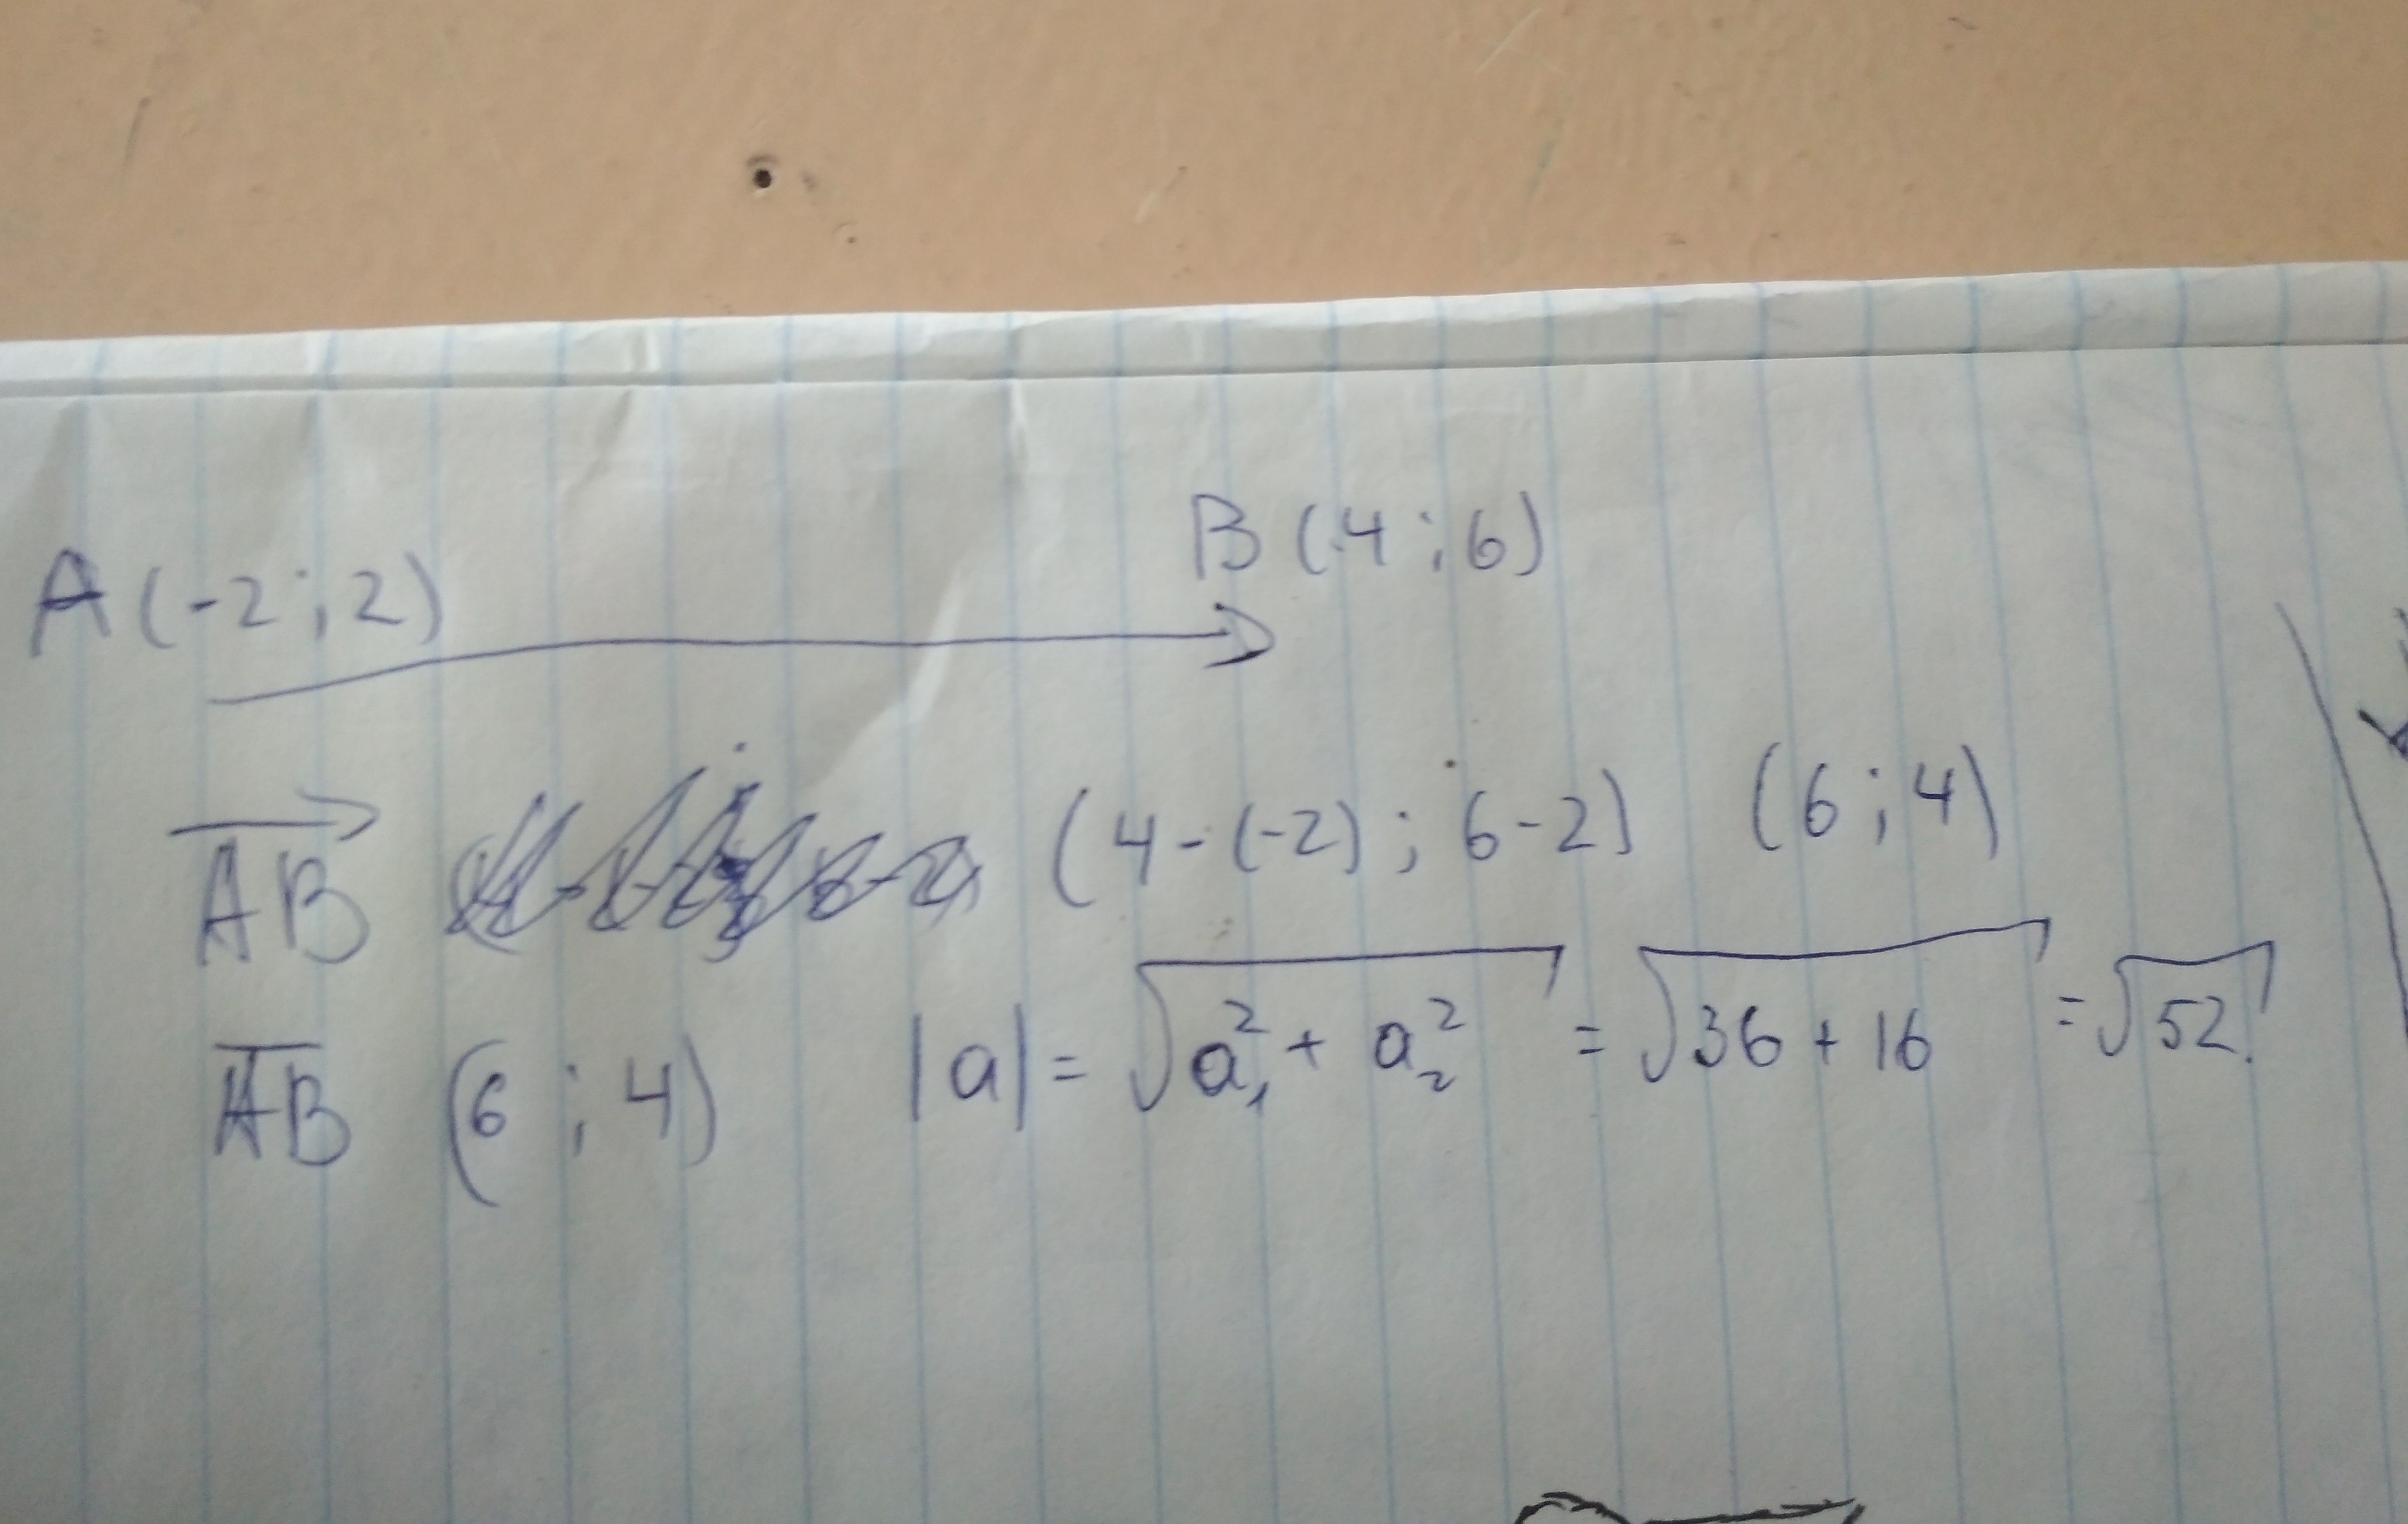 A(-2;2) B(4;6)
AB (4-(-2); 6-2) (6;4)
AB (6;4) |a|=√a₁²+a₂² = √36+16 = √52.